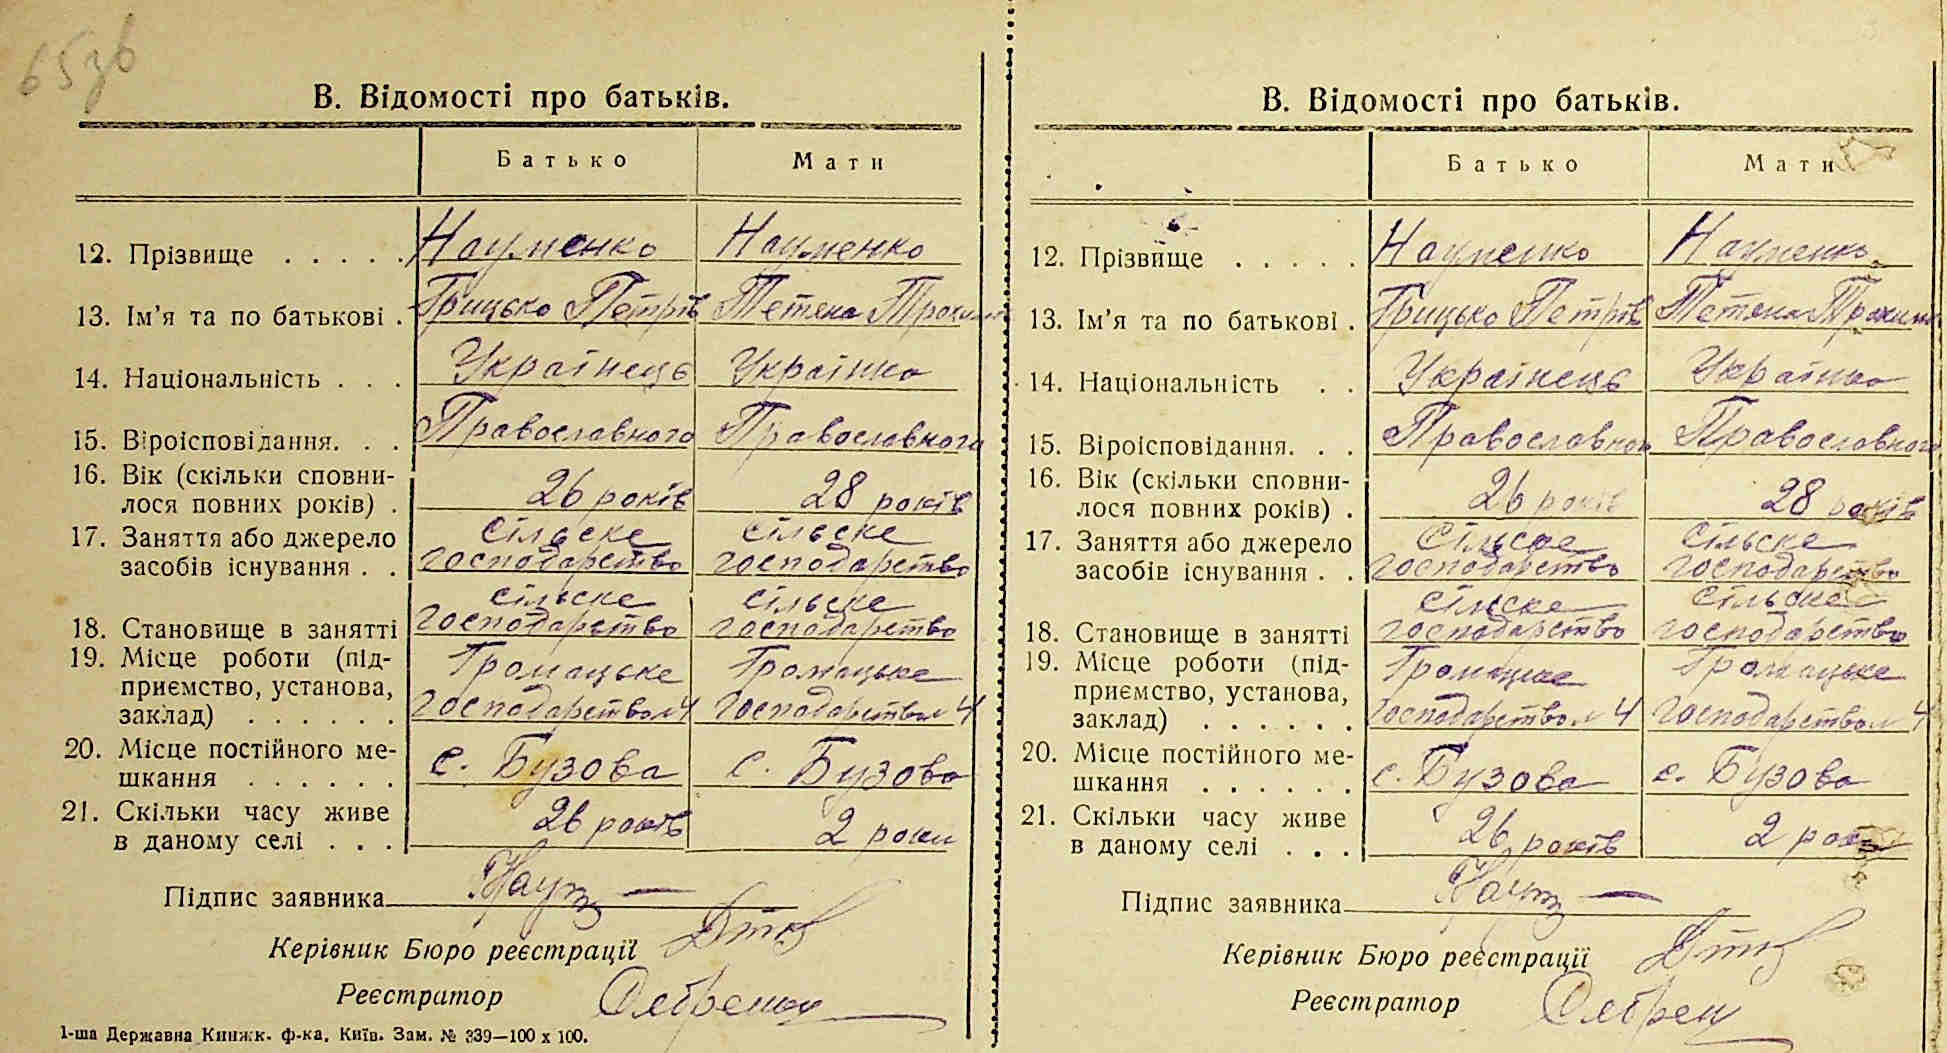 65зв
В. Відомості про батьків.
Батько Мати
12. Прізвище . . . . . Науменко Науменко
13. Ім'я та по батькові . Грицько Петрів Тетяна Трохим
14. Національність . . . Українець Українка
15. Віроісповідання. . . Православного Православного
16. Вік (скільки сповни-
лося повних років) . 26 років 28 років
17. Заняття або джерело сільске сільске
засобів існування . . господарство господарство
сільске сільске
18. Становище в занятті господарство господарство
19. Місце роботи (під- Громацьке Громацьке
приємство, установа,
заклад) . . . . . . господарство 4 господарство 4
20. Місце постійного ме-
шкання . . . . . . с. Бузова с. Бузова
21. Скільки часу живе
в даному селі . . . 26 років 2 роки
Підпис заявника Наум
Керівник Бюро реєстрації
Реєстратор
1-ша Державна Книжк. ф-ка, Київ. Зам. № 339—100 х 100.
В. Відомості про батьків.
Батько Мати
12. Прізвище . . . . . Науменко Науменко
13. Ім'я та по батькові . Грицько Петрів Тетяна Трохим
14. Національність . . Українець Українка
15. Віроісповідання. . . Православного Православного
16. Вік (скільки сповни-
лося повних років) . 26 років 28 років
17. Заняття або джерело Сільске сільске
засобів існування . . господарство господарство
сільске сільске
18. Становище в занятті господарство господарство
19. Місце роботи (під- Громацьке Громацьке
приємство, установа,
заклад) . . . . . . господарство 4 господарство 4
20. Місце постійного ме-
шкання . . . . . . с. Бузова с. Бузова
21. Скільки часу живе
в даному селі . . . 26 років 2 роки
Підпис заявника Наум
Керівник Бюро реєстрації
Реєстратор